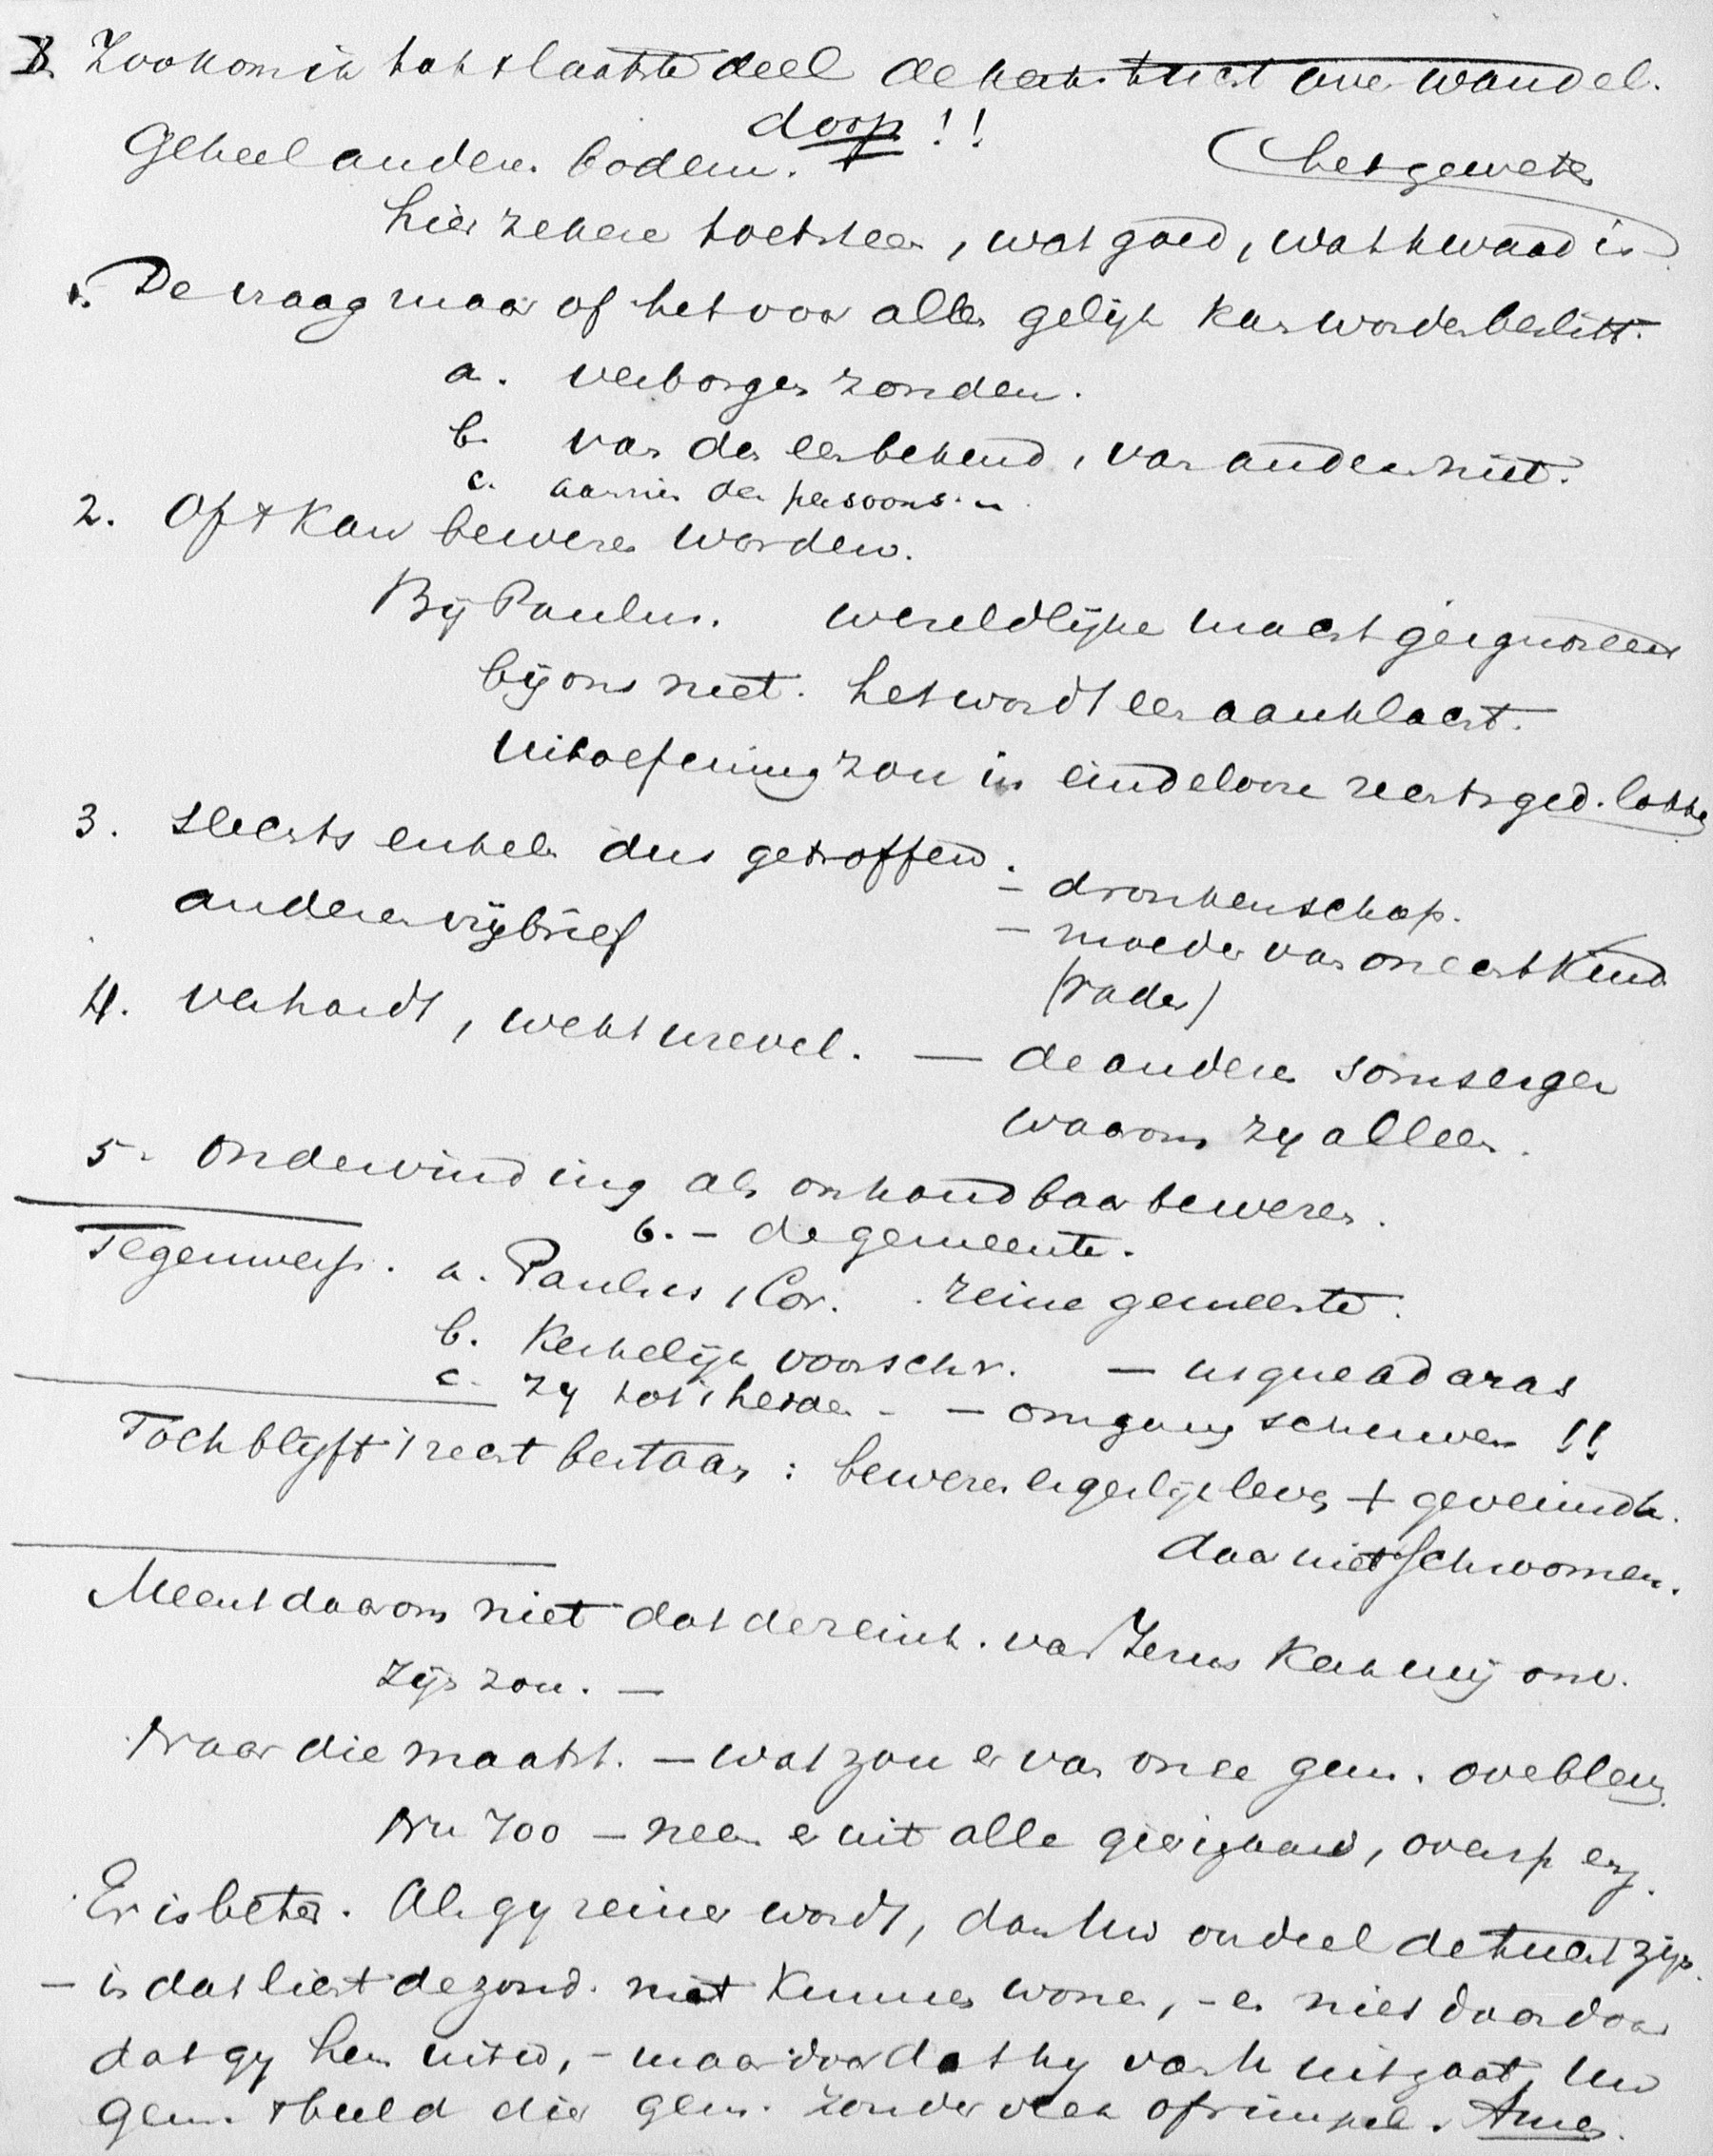 B. Zoo kom ik tot 't laatste deel de kerk. tucht over wandel.
doop!!
Geheel andere bodem. (het geweten
hier zekere toetssteen, wat goed, wat kwaad is)
1. De vraag maar of het voor allen gelijk kan worden beslist.
a. verborgen zonden.
b. van den een bekend, van anderen niet.
c. aannem. der persoons.
2. Of 't kan bewezen worden.
Bij Paulus. wereldlijke macht geignoreerd
bij ons niet. het wordt een aanklacht.
Uitoefening zou in eindelooze rechtsged. lokken
3. Slechts enkelen dus getroffen. – dronkenschap.
anderen vrijbrief – moeder van onecht kind
(vader)
4. Verhardt, wekt wrevel. — de anderen soms erger
waarom zy alleen.
5. Ondervinding als onhoudbaar bewezen.
6. – de gemeente.
Tegenwerp. a. Paulus 1 Cor. reine gemeente.
b. Kerkelijk voorschr. – usque ad aras
c. zy tot 's herder – – omgang schuwen !!
Toch blyft 't recht bestaan: bewezen ergerlijk leven + geveinsdh.
daar niet schromen.
Meent daarom niet dat de reinh. van Jezus Kerk mij onv.
zijn zou. —
Naar die maatst. – wat zou er van onze gem. overblev.
Nu 700 – neen er uit alle gierigaard, oversp enz.
Er is beter. Als gy reiner wordt, dan Uw oordeel de tucht zijn.
– in dat licht de zond. niet kunnen wonen, – en niet daardoor
dat gy hen uitw, – maar doordat hy van U uitgaat, Uw
gem. 't beeld dier gem. zonder vlek of rimpel. Amen.